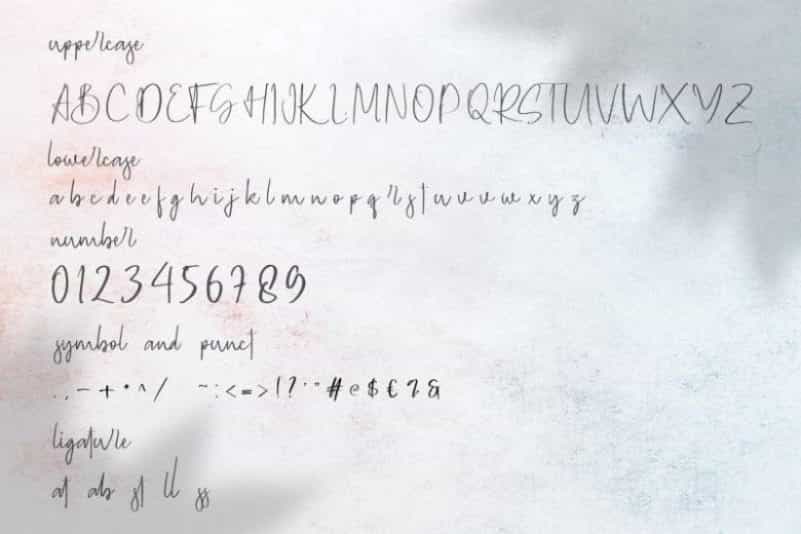 uppercase
ABCDEFGHIJKLMNOPQRSTUVWXYZ
lowercase
a b c d e e f g h i j k l m n o p q r s t u v v w x y z
number
0123456789
symbol and punct
. , - + • ^ / ~ : < = > ! ? ' " # @ $ € ? &
ligature
at ab st ll ss